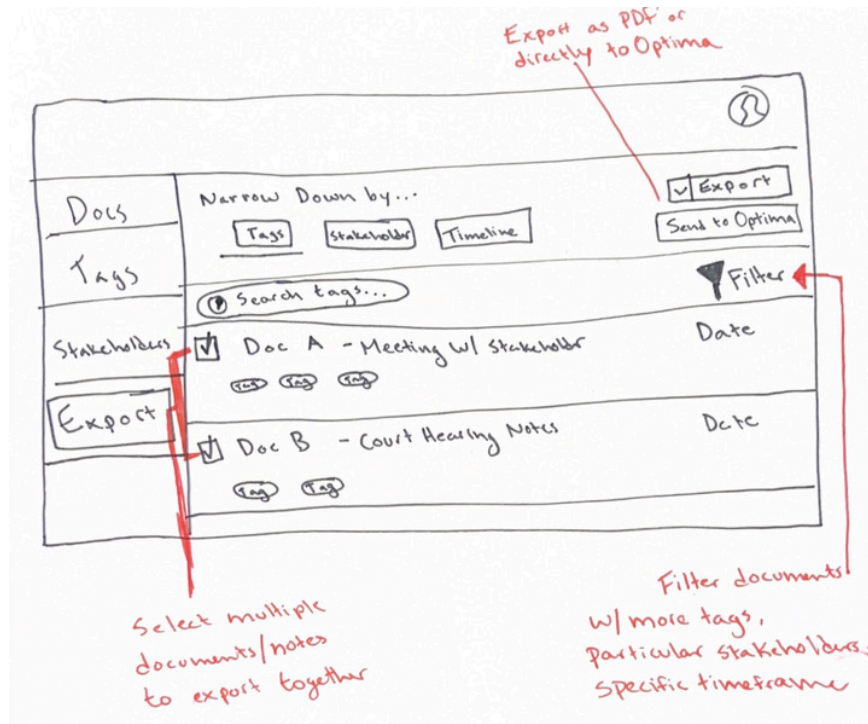 Export as PDF or
directly to Optima
Docs
Tags
Stakeholders
Export
Narrow Down by...
Tags
Stakeholder
Timeline
Export
Send to Optima
Search tags...
Filter
Doc A - Meeting w/ Stakeholdr
Date
Tag Tag Tag
Doc B - Court Hearing Notes
Date
Tag Tag
Select multiple
documents/notes
to export together
Filter documents
w/ more tags,
particular stakeholders,
specific timeframe